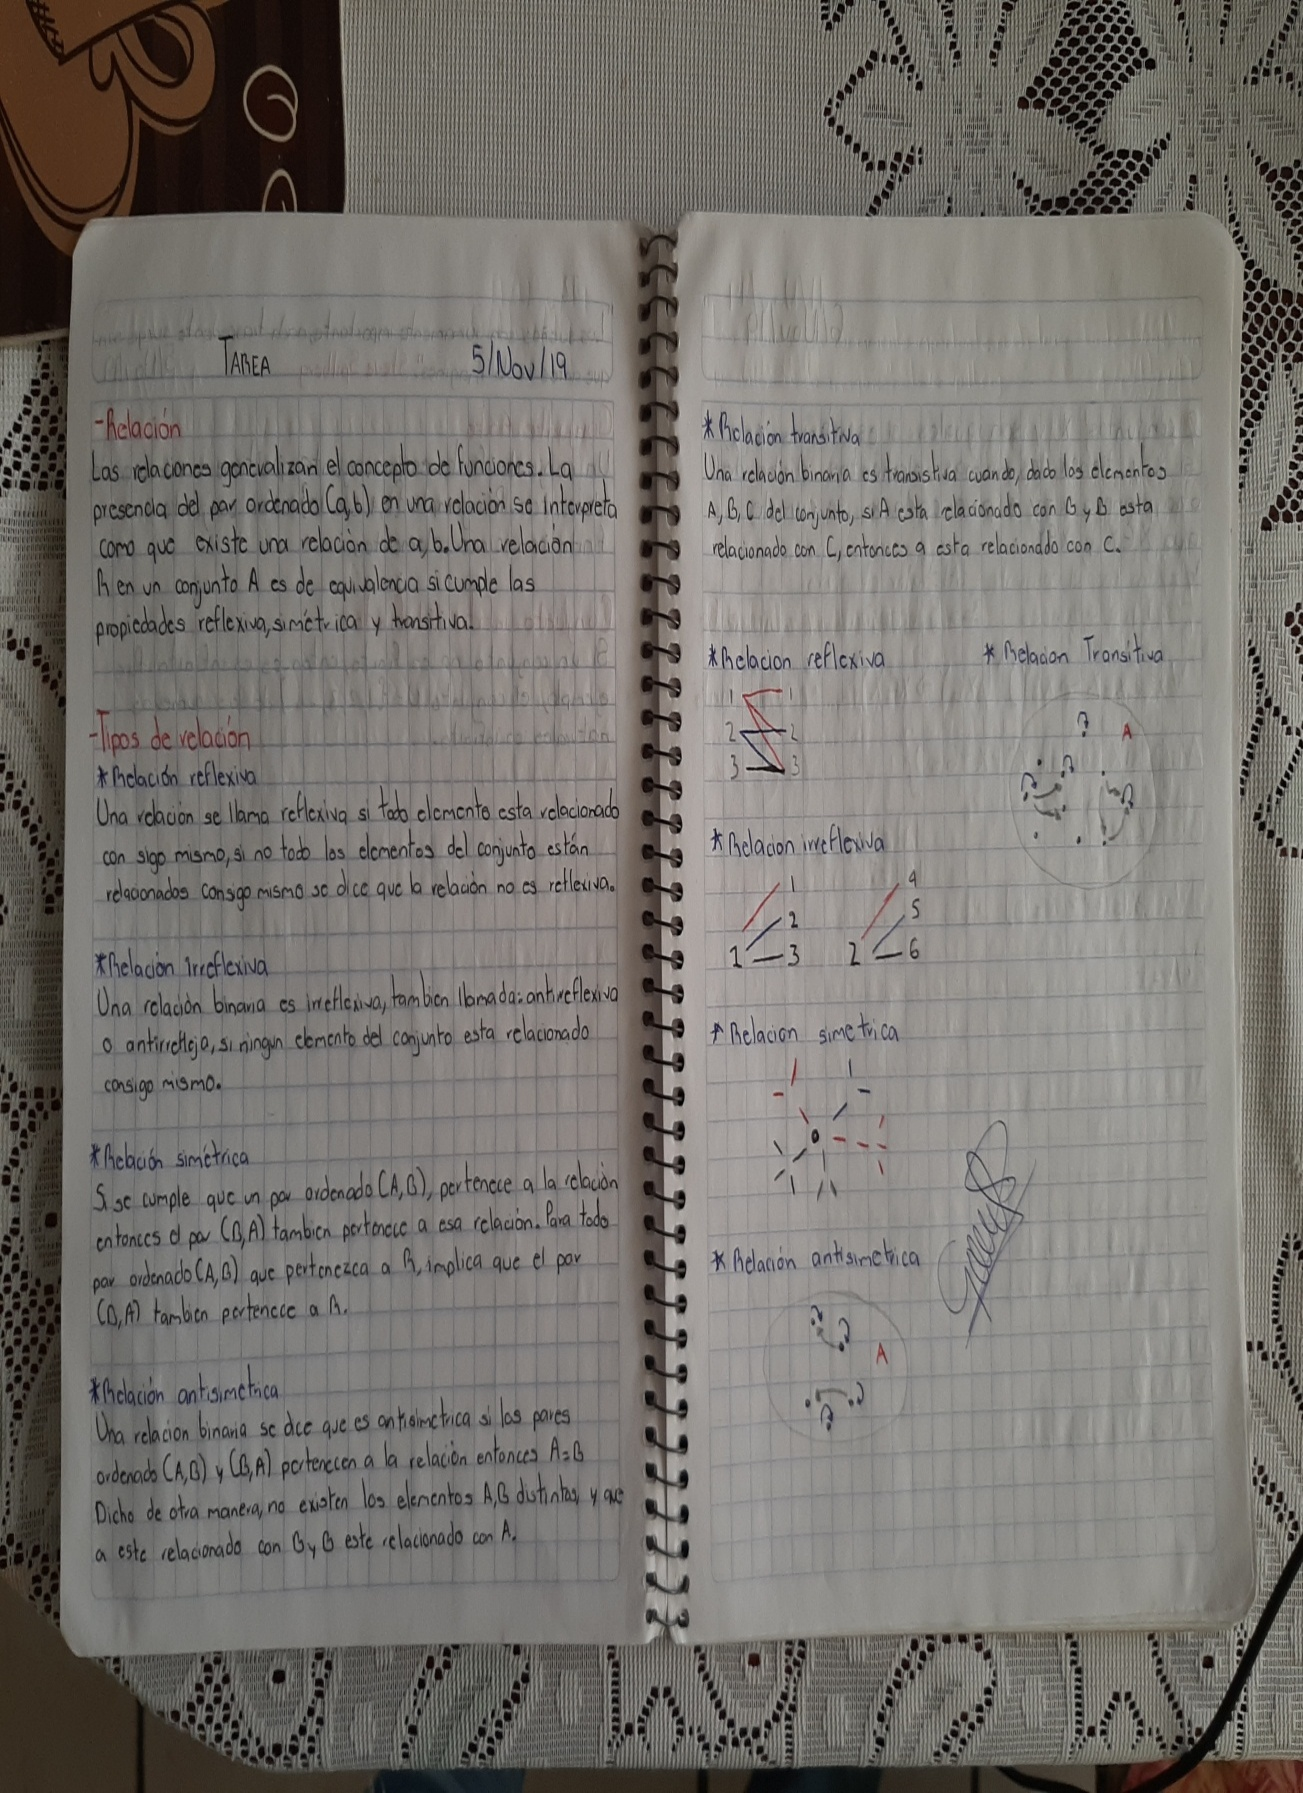 TAREA 5/Nov/19
-Relación
Las relaciones generalizan el concepto de funciones. La
presencia del par ordenado (a,b) en una relación se interpreta
como que existe una relacion de a, b. Una relación
R en un conjunto A es de equivalencia si cumple las
propiedades reflexiva, simétrica y transitiva.
-Tipos de relación
*Relación reflexiva
Una relación se llama reflexiva si todo elemento esta relacionado
con sigo mismo, si no todo los elementos del conjunto están
relacionados consigo mismo se dice que la relación no es reflexiva.
*Relación Irreflexiva
Una relación binaria es irreflexiva, tambien llamada: antirreflexiva
o antirrefleja, si ningun elemento del conjunto esta relacionado
consigo mismo.
*Relación simétrica
Si se cumple que un par ordenado (A,B), pertenece a la relación
entonces el par (B,A) tambien pertenece a esa relación. Para todo
par ordenado (A,B) que pertenezca a R, implica que el par
(B,A) tambien pertenece a R.
*Relación antisimetrica
Una relacion binaria se dice que es antisimetrica si los pares
ordenado (A,B) y (B,A) pertenecen a la relación entonces A=B
Dicho de otra manera, no existen los elementos A,B distintos, y que
a este relacionado con B y B este relacionado con A.
*Relación transitiva
Una relación binaria es transistiva cuando, dado los elementos
A, B, C del conjunto, si A esta relacionado con B y B esta
relacionado con C, entonces a esta relacionado con C.
*Relacion reflexiva *Relacion Transitiva
1 1
2 2
3 3
A
*Relacion irreflexiva
1 4
2 5
1 3 2 6
*Relacion simetrica
*Relación antisimetrica
A